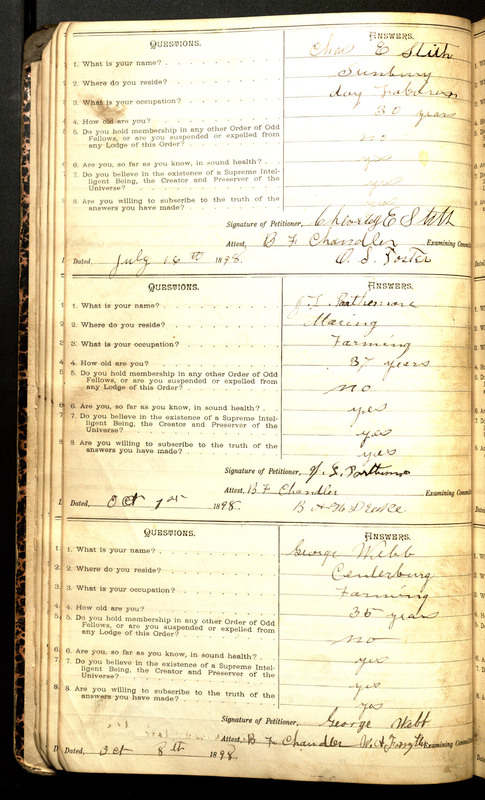 QUESTIONS. ANSWERS.
1. What is your name? Chas E Stith
2. Where do you reside? Sunbury
3. What is your occupation? day Laborer
4. How old are you? 30 years
5. Do you hold membership in any other Order of Odd
Fellows, or are you suspended or expelled from
any Lodge of this Order? no
6. Are you, so far as you know, in sound health? yes
7. Do you believe in the existence of a Supreme Intel-
ligent Being, the Creator and Preserver of the
Universe? yes
8. Are you willing to subscribe to the truth of the
answers you have made? yes
Signature of Petitioner, Charley E Stith
Attest, B F Chandler Examining Committ
Dated, July 16th 1898. O. S. Foster
QUESTIONS. ANSWERS.
1. What is your name?
2. Where do you reside?
3. What is your occupation? Farming
4. How old are you? 37 years
5. Do you hold membership in any other Order of Odd
Fellows, or are you suspended or expelled from
any Lodge of this Order? no
6. Are you, so far as you know, in sound health? yes
7. Do you believe in the existence of a Supreme Intel-
ligent Being, the Creator and Preserver of the
Universe? yes
8 Are you willing to subscribe to the truth of the
answers you have made? yes
Signature of Petitioner,
Attest, B F Chandler Examining Committ
Dated, Oct 1st 1898.
QUESTIONS. ANSWERS.
1. What is your name? George Webb
2. Where do you reside? Centerburg
3. What is your occupation? Farming
4. How old are you? 35 years
5. Do you hold membership in any other Order of Odd
Fellows, or are you suspended or expelled from
any Lodge of this Order? no
6. Are you, so far as you know, in sound health? yes
7. Do you believe in the existence of a Supreme Intel-
ligent Being, the Creator and Preserver of the
Universe? yes
8. Are you willing to subscribe to the truth of the
answers you have made? yes
Signature of Petitioner, George Webb
Attest, B F Chandler Examining Committ
Dated, Oct 8th 1898.